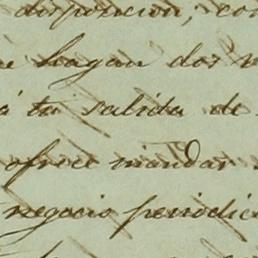 disposicion, con
hagan dos
á ta salida de
ofrece mandar
negocio periodic